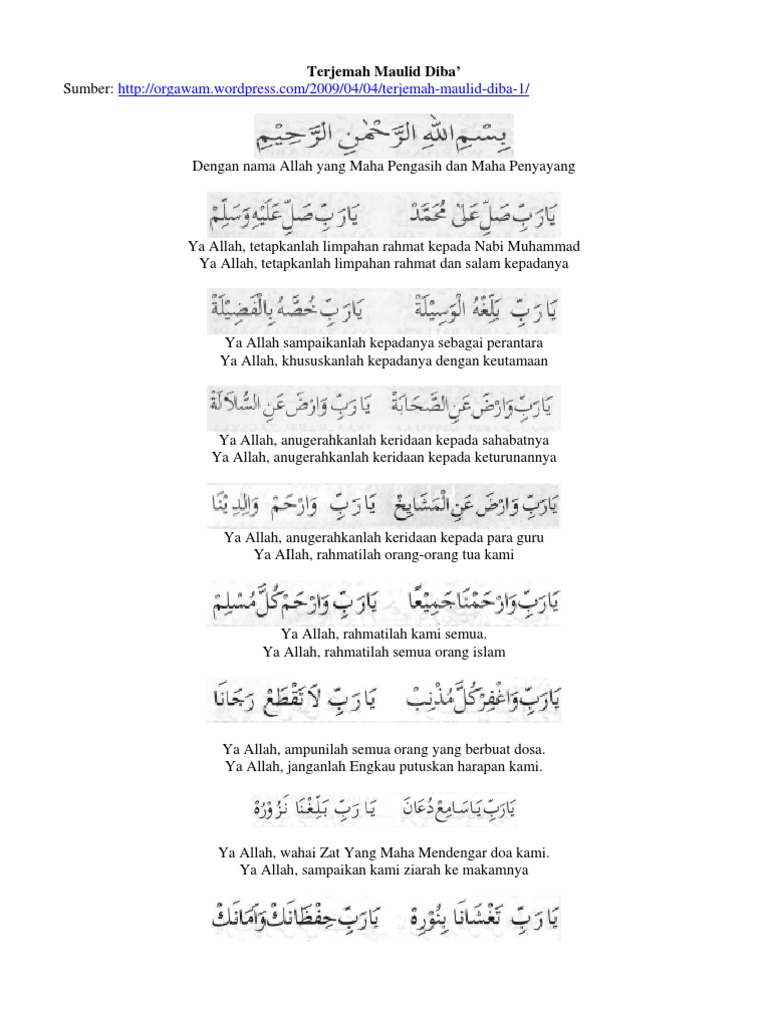 Terjemah Maulid Diba’
Sumber: http://orgawam.wordpress.com/2009/04/04/terjemah-maulid-diba-1/
بِسْمِ اللهِ الرَّحْمٰنِ الرَّحِيْمِ
Dengan nama Allah yang Maha Pengasih dan Maha Penyayang
يَارَبِّ صَلِّ عَلٰى مُحَمَّدْ يَارَبِّ صَلِّ عَلَيْهِ وَسَلِّمْ
Ya Allah, tetapkanlah limpahan rahmat kepada Nabi Muhammad
Ya Allah, tetapkanlah limpahan rahmat dan salam kepadanya
يَارَبِّ بَلِّغْهُ الْوَسِيْلَةْ يَارَبِّ خُصَّهُ بِالْفَضِيْلَةْ
Ya Allah sampaikanlah kepadanya sebagai perantara
Ya Allah, khususkanlah kepadanya dengan keutamaan
يَارَبِّ وَارْضَ عَنِ الصَّحَابَةْ يَارَبِّ وَارْضَ عَنِ السُّلَالَةْ
Ya Allah, anugerahkanlah keridaan kepada sahabatnya
Ya Allah, anugerahkanlah keridaan kepada keturunannya
يَارَبِّ وَارْضَ عَنِ الْمَشَايِخْ يَارَبِّ وَارْحَمْ وَالِدِيْنَا
Ya Allah, anugerahkanlah keridaan kepada para guru
Ya AIlah, rahmatilah orang-orang tua kami
يَارَبِّ وَارْحَمْنَا جَمِيْعًا يَارَبِّ وَارْحَمْ كُلَّ مُسْلِمْ
Ya Allah, rahmatilah kami semua.
Ya Allah, rahmatilah semua orang islam
يَارَبِّ وَاغْفِرْ كُلَّ مُذْنِبْ يَارَبِّ لَا تَقْطَعْ رَجَانَا
Ya Allah, ampunilah semua orang yang berbuat dosa.
Ya Allah, janganlah Engkau putuskan harapan kami.
يَارَبِّ يَا سَامِعْ دُعَانَا يَارَبِّ بَلِّغْنَا نَزُوْرُهْ
Ya Allah, wahai Zat Yang Maha Mendengar doa kami.
Ya Allah, sampaikan kami ziarah ke makamnya
يَارَبِّ تَغْشَانَا بِنُوْرِهْ يَارَبِّ حِفْظَانَكْ وَاَمَانَكْ